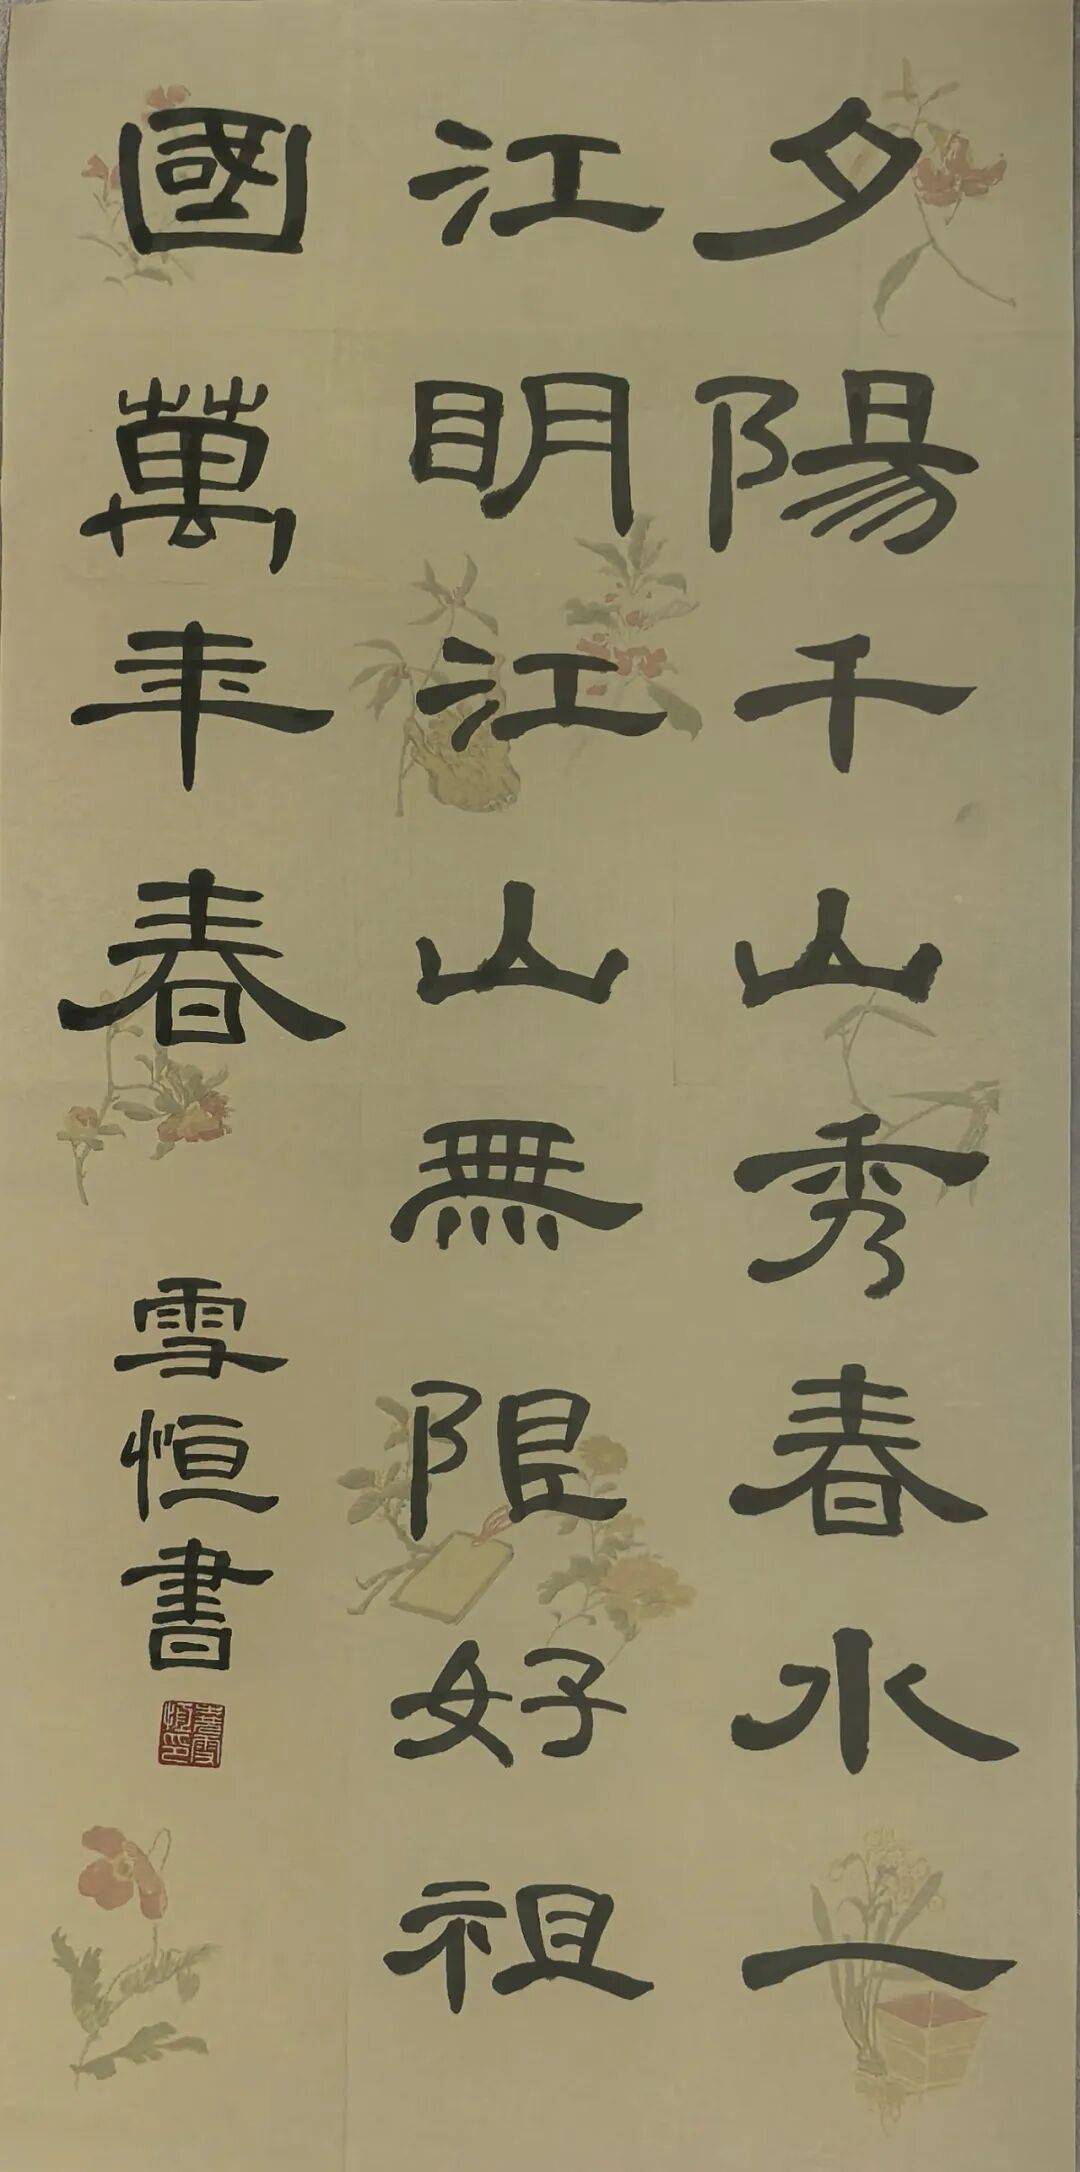 夕陽千山秀春水一
江明江山無限好祖
國萬年春
雪恒書